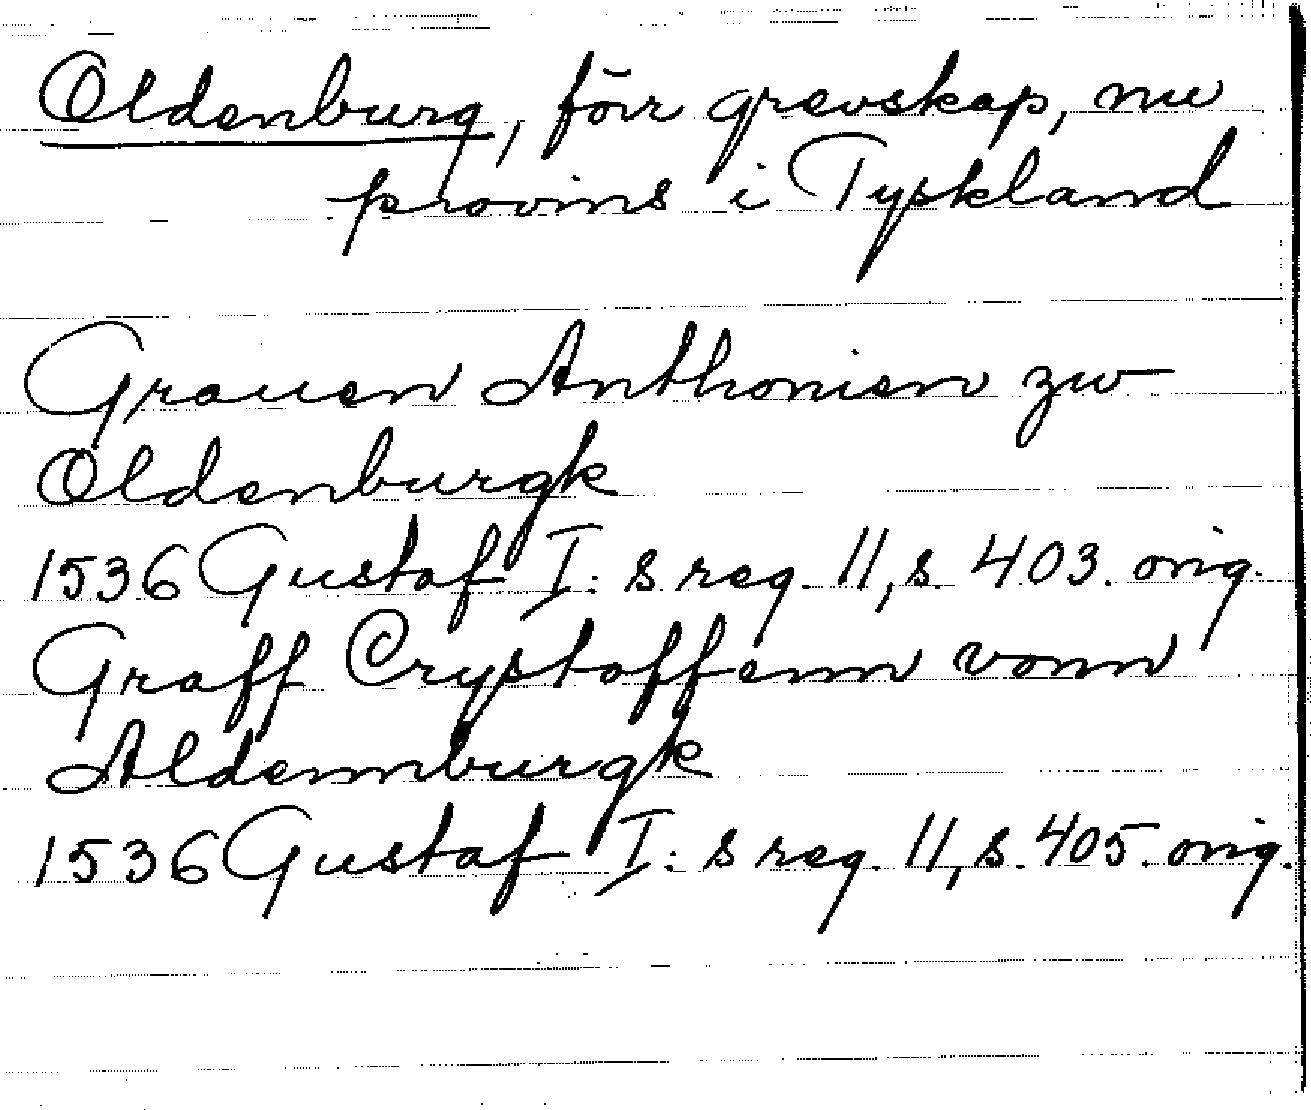 Oldenburg, förr grevskap, nu
provins i Tyskland
Grauen Anthonien zw
Oldenburgk
1536 Gustaf I:s reg. 11, s. 403. orig.
Graff Crystoffenn vonn
Aldennburgk
1536 Gustaf I:s reg. 11, s. 405. orig.